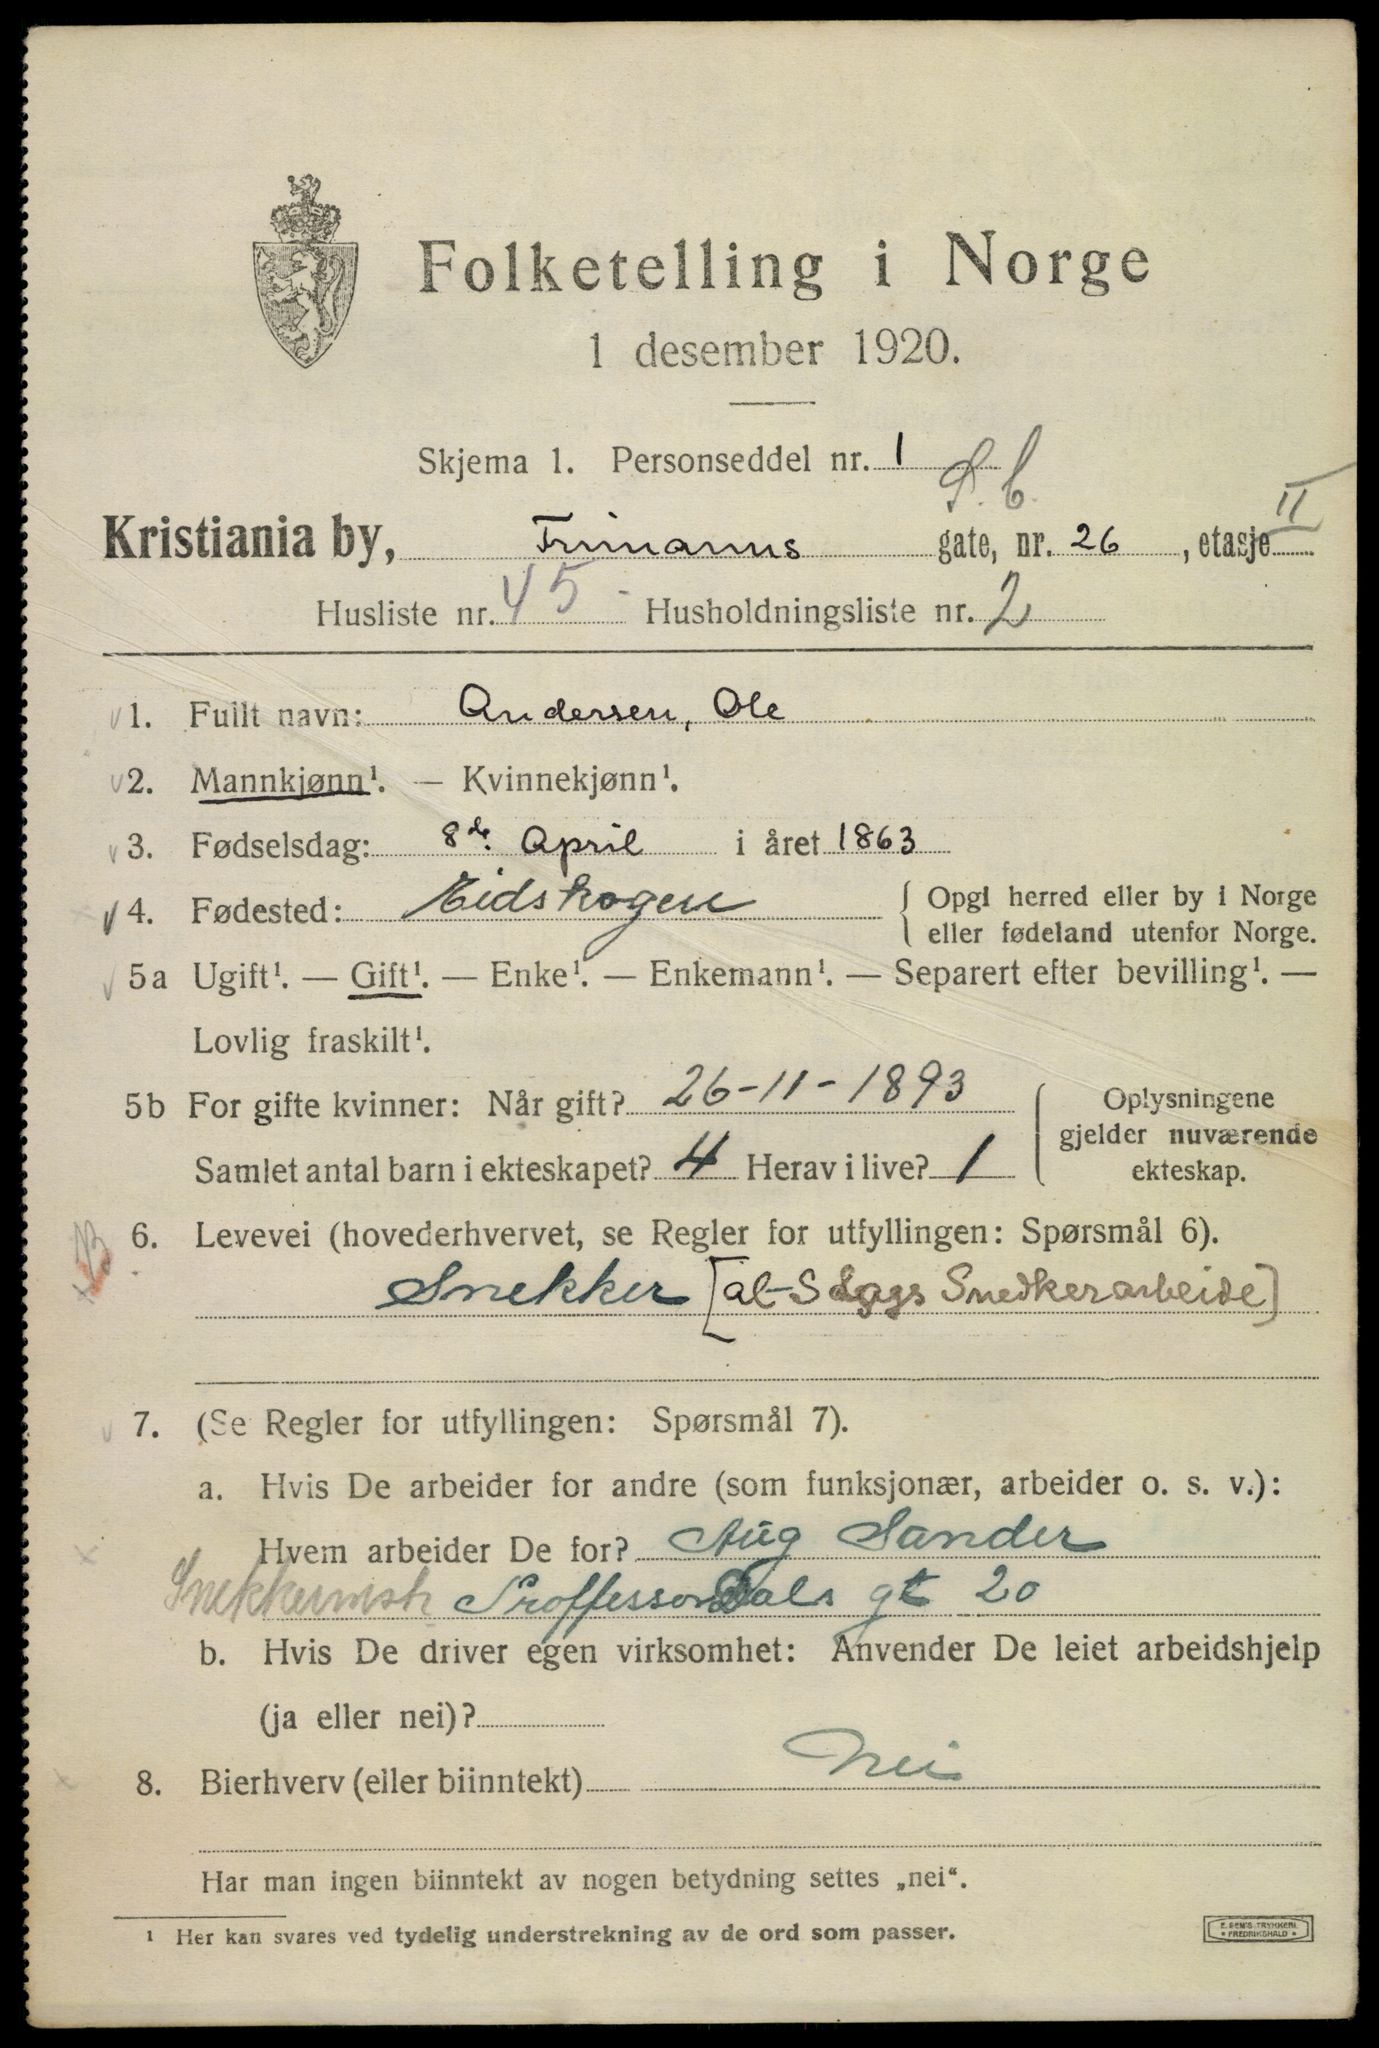 Folketelling i Norge
1 desember 1920.
Skjema 1. Personseddel nr. 1
Kristiania by, Frimanns gate, nr. 26, etasje II
Husliste nr. 45 Husholdningsliste nr. 2
1. Fullt navn: Andersen, Ole
2. Mannkjønn¹. — Kvinnekjønn¹.
3. Fødselsdag: 8de April i året 1863
4. Fødested: Eidskogen { Opgi herred eller by i Norge
eller fødeland utenfor Norge.
5a Ugift¹. — Gift¹. — Enke¹. — Enkemann¹. — Separert efter bevilling¹. —
Lovlig fraskilt¹.
5b For gifte kvinner: Når gift? 26-11-1893 { Oplysningene
gjelder nuværende
Samlet antal barn i ekteskapet? 4 Herav i live? 1 ekteskap.
6. Levevei (hovederhvervet, se Regler for utfyllingen: Spørsmål 6).
Snekker [al-Slags Snedkerarbeide]
7. (Se Regler for utfyllingen: Spørsmål 7).
a. Hvis De arbeider for andre (som funksjonær, arbeider o. s. v.):
Hvem arbeider De for? Aug Sander
Snekkermstr Proffessor Dals gt 20
b. Hvis De driver egen virksomhet: Anvender De leiet arbeidshjelp
(ja eller nei)?
8. Bierhverv (eller biinntekt) Nei
Har man ingen biinntekt av nogen betydning settes „nei“.
¹ Her kan svares ved tydelig understrekning av de ord som passer.
E. SEM'S TRYKKERI
• FREDRIKSHALD •